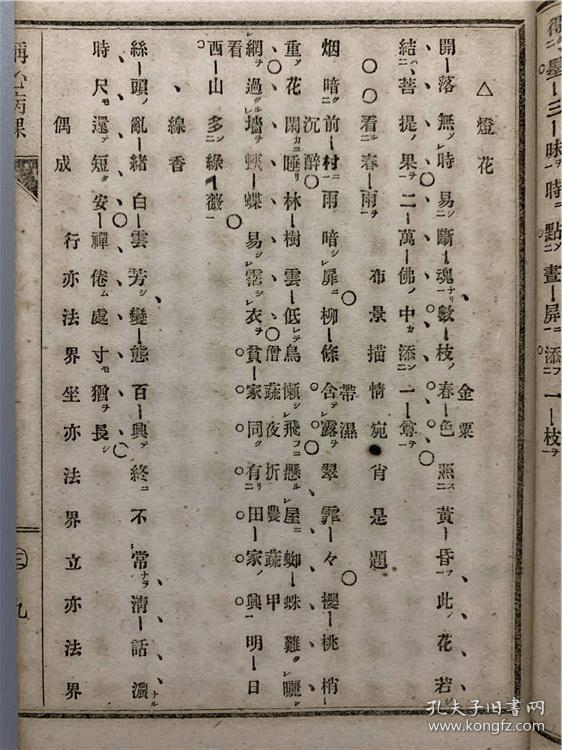 得墨三昧時點畫屏添一枝
△燈花
金粟
開落無時易斷魂數枝春色照黃昏此花若
結菩提果二萬佛中添一尊
看春雨
布景描情宛肖是題
帶濕
烟暗前村雨暗扉柳條含露翠霏々櫻桃梢
沉醉
重花閑睡林樹雲低鳥懶飛懸屋蜘蛛難曬
僧蔬夜折農蔬甲
網過墻蛺蝶易霑衣貧家同有田家興明日
看
西山多綠薇
線香
絲頭亂緒白雲芳變態百興終不常清話濃
時尺還短安禪倦處寸猶長
偶成
行亦法界坐亦法界立亦法界
三九
孔夫子旧书网
www.kongfz.com